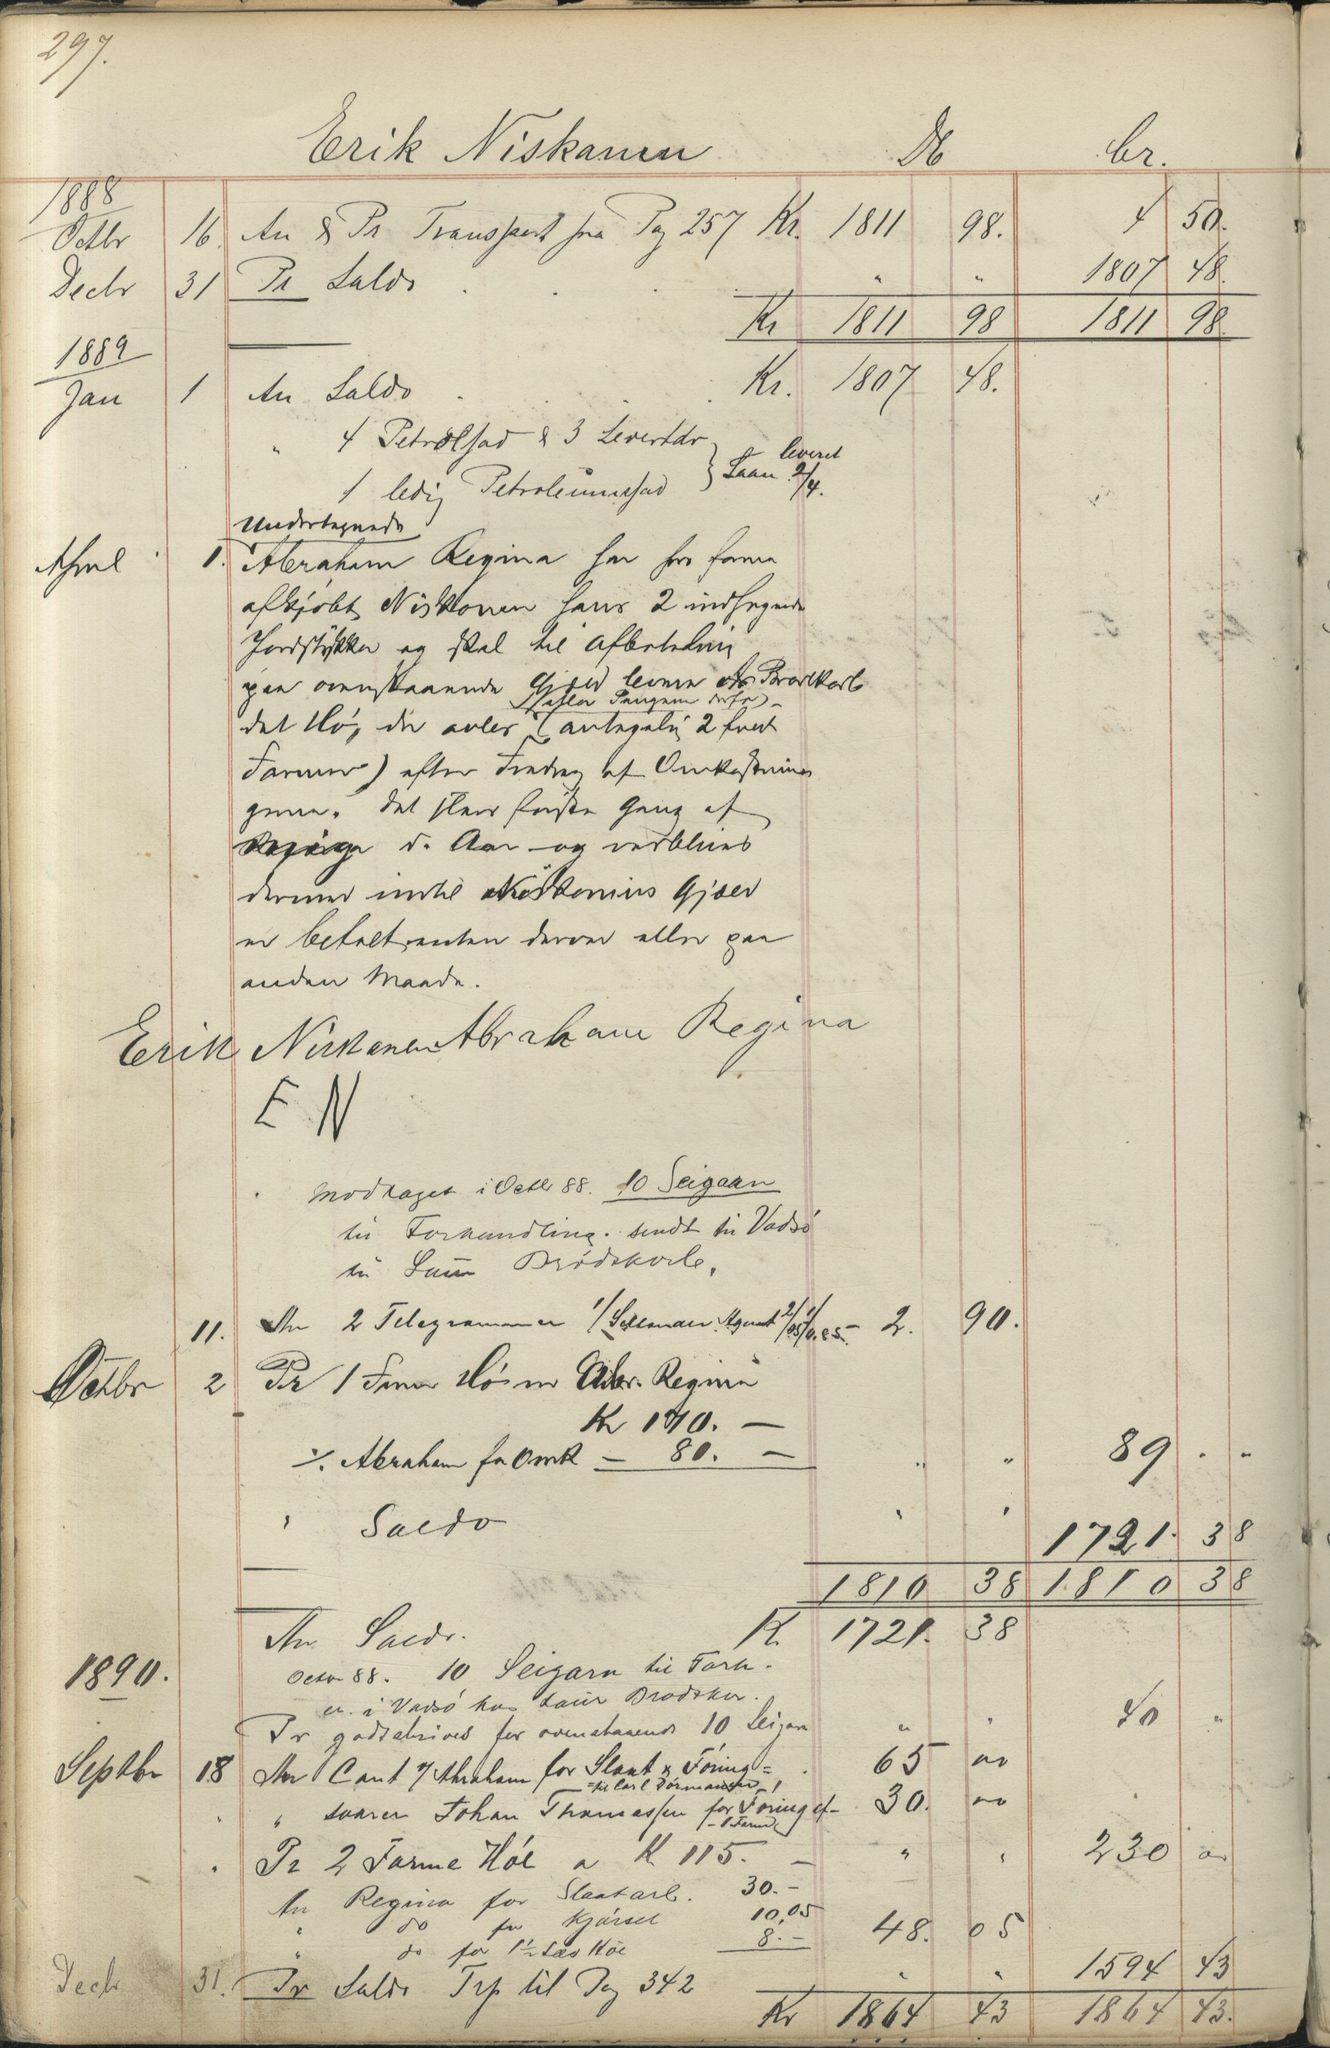 297.
Erik Niskanen Db Cr.
1888
Octbr 16 An & Pr Transport fra Pag 257 Kr. 1811 98. 4 50.
Decbr 31 Pr Saldo . . . " " 1807 48.
Kr 1811 98 1811 98
1889
Jan 1 An Saldo . . . Kr. 1807 48.
" 4 Petrolfad & 3 Levertdr
1 ledig Petroleumsfad } Laan leveret 2/4.
Undertegnede
April 1. Abraham Regina har
afkjøbt Niskanen hans 2 indhegnede
Jordstykker og skal til Afbetaling
paa ovenstaaende Gjæld levere
det Hø, der avles (antagelig 2
Farmer) efter Fradrag af Omkostnin
gerne. Det skeer første Gang af
d. Aar og vedblives
dermed indtil Niskanens Gjæld
er betalt enten derved eller paa
anden Maade.
Erik Niskanen Abraham Regina
E N
Modtaget i Octbr 88. 10 Seigarn
til Forhandling. sendt til Vadsø
til Brødskorb.
11. An 2 Telegrammer 2. 90.
Octbr 2 Pr 1 Hø Abr. Regina
Kr 170. —
% Abraham for Omk — 80. — " " 89 . "
" Saldo " " 1721. 38
1810 38 1810 38
An Saldo. K. 1721. 38
1890.
Octbr 88. 10 Seigarn til Forh.
er i Vadsø hos
Pr godskrives for ovenstaaende 10 Seigarn " " 40 "
Septbr 18 An Cont % Abraham for Slaat & Føring = . 65 oo
" " svarer Johan Thomassen for Føring af 30. oo
" Pr 2 Farme Høe a K 115. — " " 230 oo
An Regina for Slaatarb. 30.-
" do for Kjørsel 10,05
" do for 1½ Læs Høe 8.- 48. 05
Decb 31. Pr Saldo Trp til Pag 342 " " 1594 43
Kr 1864 43 1864 43.